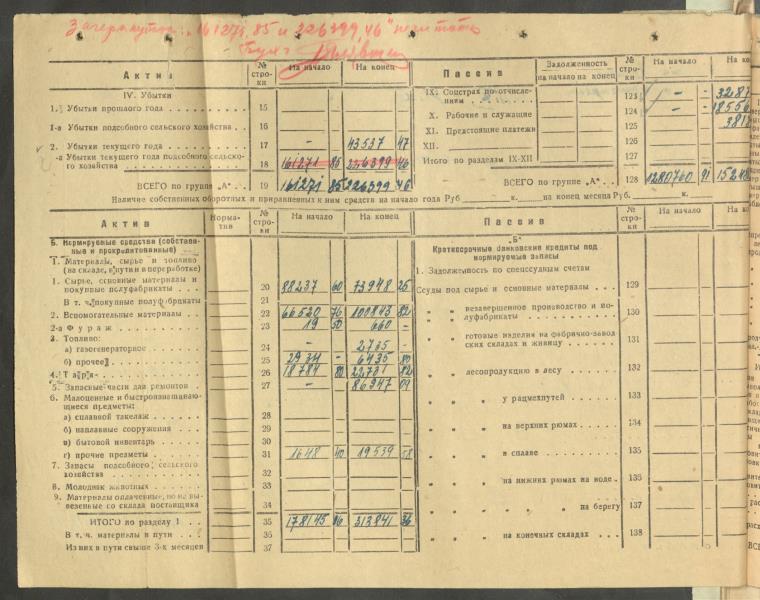 Зачеркнутое: "161271,85 и 226399,46" не читать
Актив № строки На начало На конец
IV. Убытки
1. Убытки прошлого года 15
1-а Убытки подсобного сельского хозяйства 16
2. Убытки текущего года 17 – 43537 47
-а Убытки текущего года подсобного сельско-
го хозяйства 18 161271 85 226399 46
ВСЕГО по группе „А" 19 161271 85 226399 46
Пассив № строки Задолженность на начало на конец На начало
IX. Соцстрах по отчисле-
ниям 123 – -
X. Рабочие и служащие 124 – -
XI. Предстоящие платежи 125
XII. 126
Итого по разделам IX-XII
ВСЕГО по группе „А" 128 1280760 91
Наличие собственных оборотных и приравненных к ним средств на начало года Руб. к. на конец месяца Руб. к.
Актив Норматив № строки На начало На конец
Б. Нормируемые средства (собствен-
ные и прокредитованные)
1. Материалы, сырье и топливо
(на складе, в пути и в переработке)
1. Сырье, основные материалы и
покупные полуфабрикаты 20 88237 60 73948 25
В т. ч. покупные полуфабрикаты 21
2. Вспомогательные материалы 22 66520 76 100843 82
2-а Фураж 23 19 50 660 –
3. Топливо:
а) газогенераторное 24 – 2735 -
б) прочее 25 2934 - 6435 80
4. Тара 26 18784 80 22731 82
5. Запасные части для ремонтов 27 – 86947 09
6. Малоценные и быстроизнашиваю-
щиеся предметы:
а) сплавной такелаж 28
б) наплавные сооружения 29
в) бытовой инвентарь 30
г) прочие предметы 31 1648 40 19539 58
7. Запасы подсобного сельского
хозяйства 32
8. Молодняк животных 33
9. Материалы оплаченные, но не вы-
везенные со склада поставщика 34
ИТОГО по разделу 1 35 178145 06 313841 36
В т. ч. материалы в пути 36
Из них в пути свыше 3-х месяцев 37
Пассив № строки На начало
„Б"
Краткосрочные банковские кредиты под
нормируемые запасы
1. Задолженность по спецссудным счетам
Ссуды под сырье и основные материалы 129
„ „ незавершенное производство и по-
луфабрикаты 130
„ „ готовые изделия на фабрично-завод-
ских складах и живицу 131
„ „ лесопродукцию в лесу 132
„ „ „ у рацмехпутей 133
„ „ „ на верхних рюмах 134
„ „ „ в сплаве 135
„ „ „ на нижних рюмах на воде 136
„ „ „ „ „ на берегу 137
„ „ „ на конечных складах 138